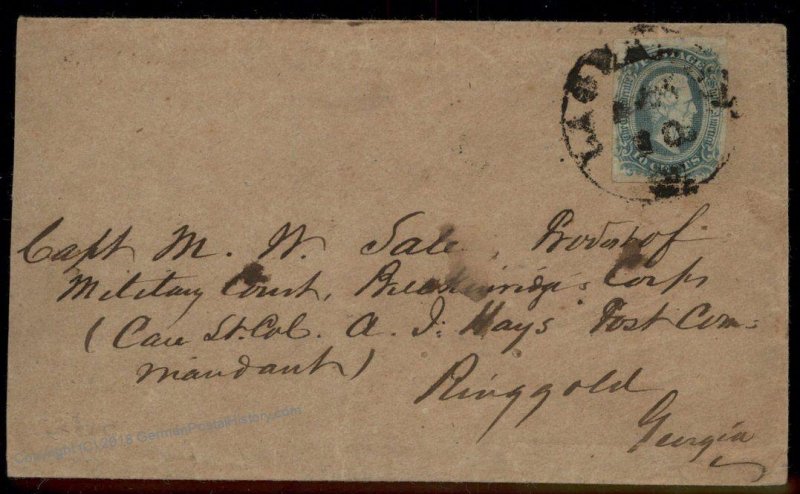 Capt M. W. Sale, Provost of
Military Court, Breckinridge's Corps
(Care Lt. Col. A. J. Hays Post Com=
mandant)
Ringgold
Georgia
Copyright (C) 2018 GermanPostalHistory.com